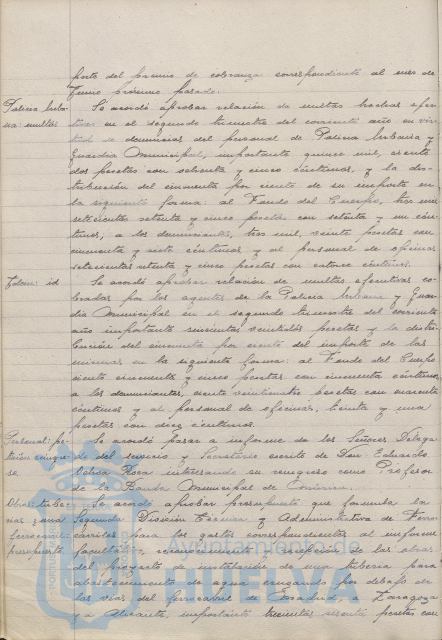 porte del premio de cobranza correspondiente al mes de
Junio próximo pasado.
Policia Urba- Se acordó aprobar relación de multas hechas efec-
na: multas tivas en el segundo trimestre del corriente año en vir-
tud de denuncias del personal de Policia Urbana y
Guardia Municipal, importante quince mil, ciento
dos pesetas con setenta y cinco céntimos, y la dis-
tribución del cincuenta por ciento de su importe en
la siguiente forma: al Fondo del Cuerpo, tres mil
setecientas setenta y cinco pesetas con setenta y un cén-
timos, a los denunciantes, tres mil, veinte pesetas con
cincuenta y siete céntimos y al personal de oficinas
setecientas cincuenta y cinco pesetas con catorce céntimos.
Idem: id Se acordó aprobar relación de multas efectivas co-
bradas por los agentes de la Policia Urbana y Guar-
dia Municipal en el segundo trimestre del corriente
año importante pesetas y la distri-
bución del cincuenta por ciento del importe de las
mismas en la siguiente forma: al Fondo del Cuerpo
ciento cincuenta y cinco pesetas con cincuenta céntimos,
a los denunciantes, ciento veinticuatro pesetas con cuarenta
céntimos y al personal de oficinas, treinta y una
pesetas con diez céntimos.
Personal: pe- Se acordó pasar a informe de los Señores Delega
tición reingre- do del servicio y Secretario escrito de Don Eduardo
so Ochoa Roca interesando su reingreso como Profesor
de la Banda Municipal de
Obras: tube- Se acordó aprobar presupuesto que formula la
rias zona Segunda División Técnica y Administrativa de Ferro
ferrocarril: carriles para los gastos correspondientes al informe
presupuesto facultativo, reconocimiento y recepción de las obras
del proyecto de instalación de una tuberia para
abastecimiento de agua cruzando por debajo de
las vias del ferrocarril de Madrid a Zaragoza
y a Alicante, importante trescientas sesenta pesetas con
Ayuntamiento de
MELILLA